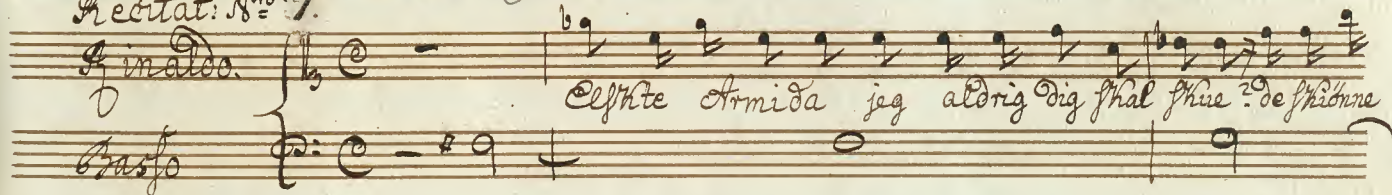 Recitat: No 7.
Rinaldo.
Elskte Armida jeg aldrig dig skal skue? de skiönne
Basso